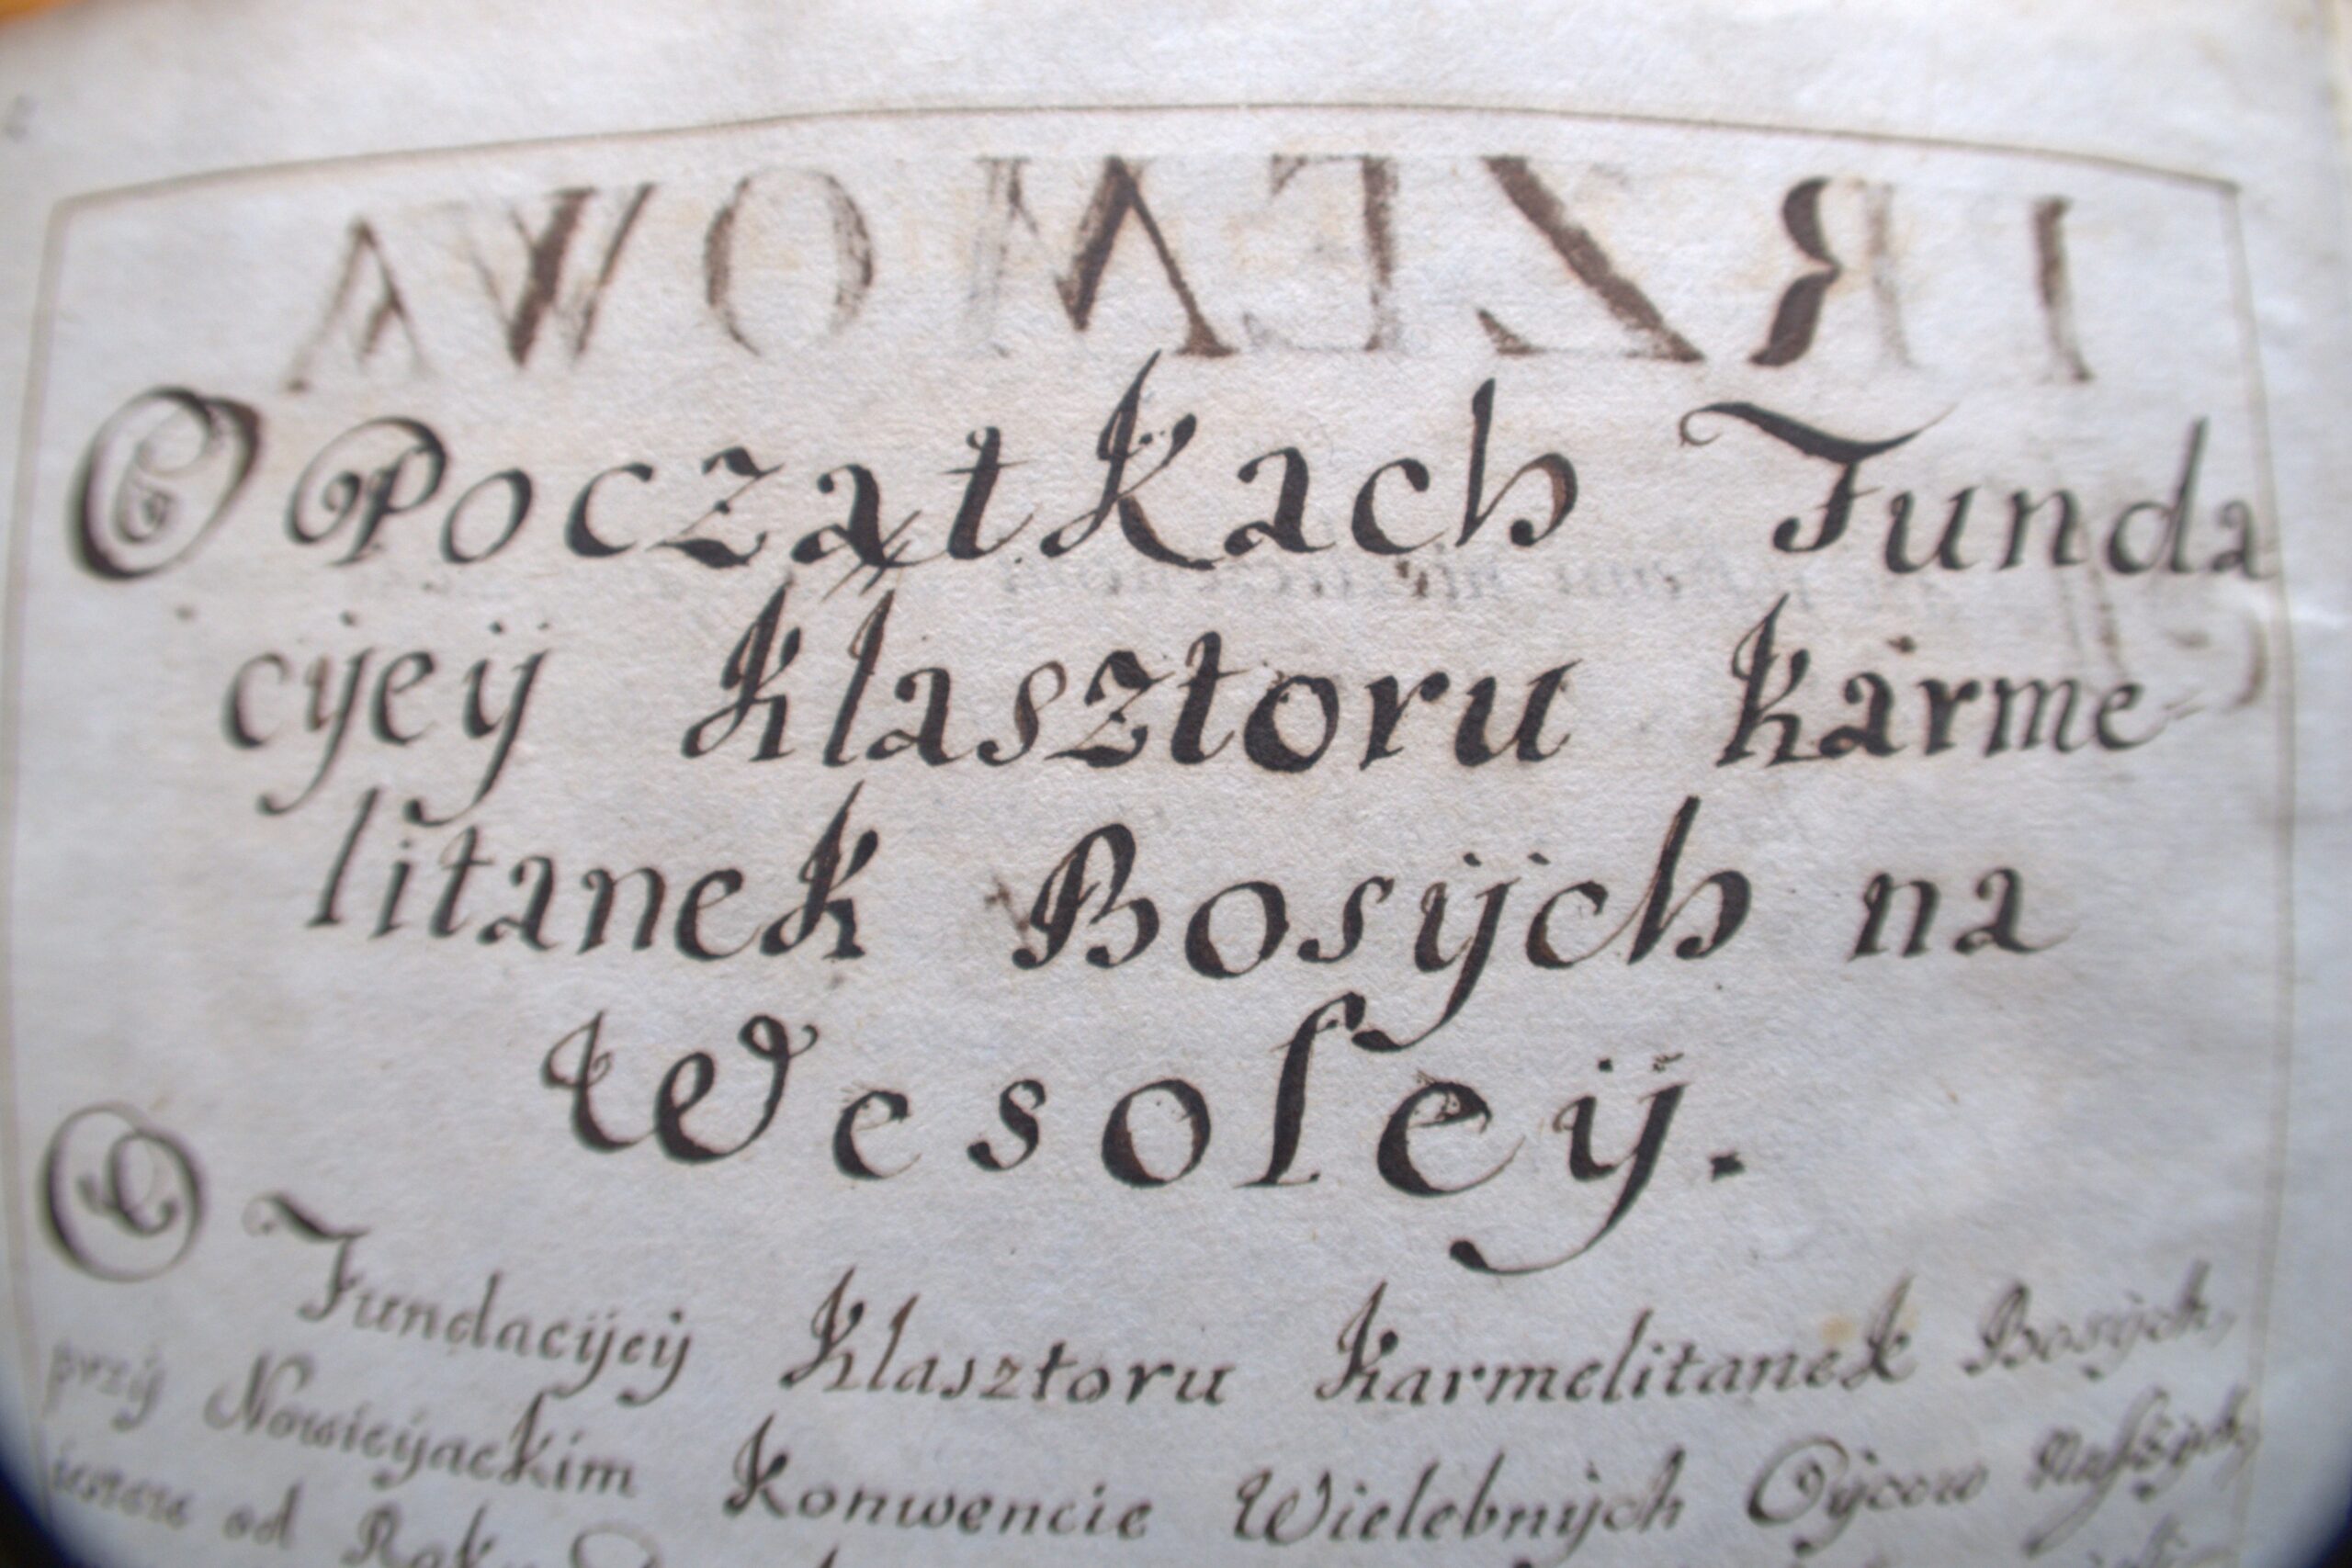 PRZEMOWA
O Początkach Funda
cÿeÿ Klasztoru Karme-
litanek Bosÿch na
Wesołeÿ.
O Fundacÿeÿ Klasztoru Karmelitanek Bosÿch,
przÿ Nowicÿackim Konwencie Wielebnÿch Oÿcow Naszÿch,
od Roku